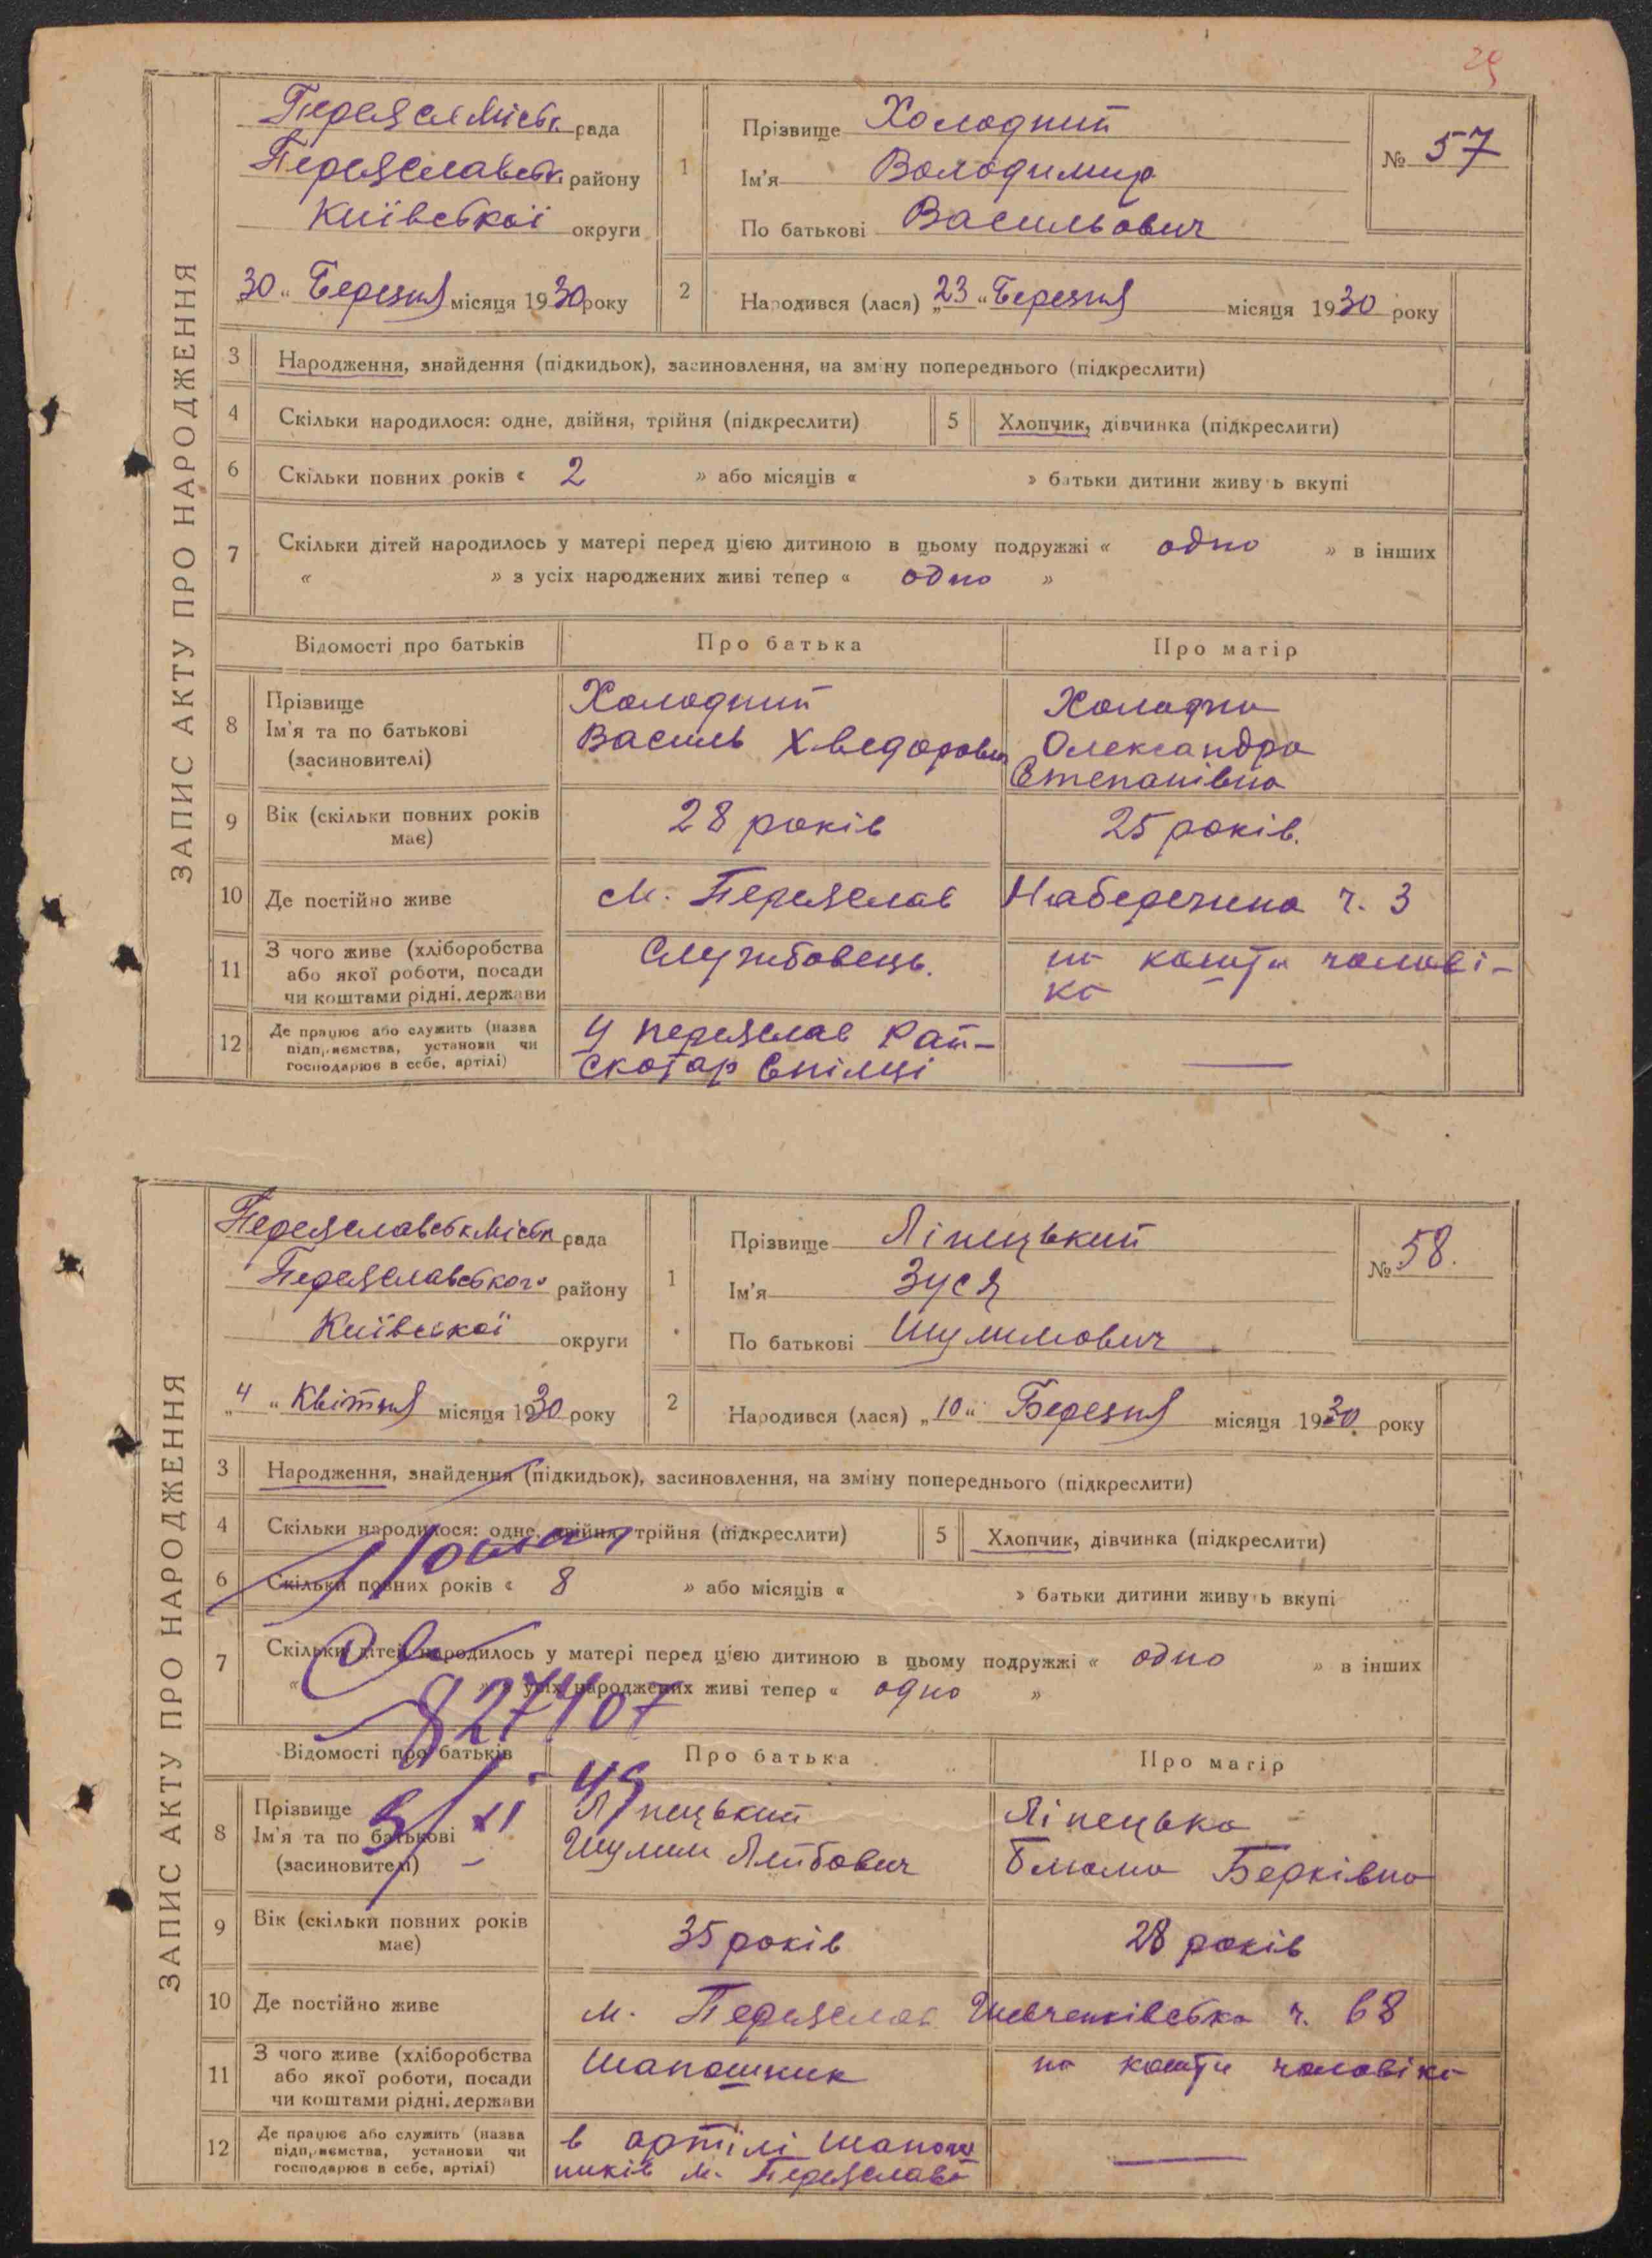 29
ЗАПИС АКТУ ПРО НАРОДЖЕННЯ
Переясл Міськ. рада
Переяславськ. району
Київської округи
„30“ Березня місяця 1930 року
1
Прізвище Холодний
Ім'я Володимир
По батькові Васильович
№ 57
2
Народився (лася) „23“ Березня місяця 1930 року
3 Народження, знайдення (підкидьок), засиновлення, на зміну попереднього (підкреслити)
4 Скільки народилося: одне, двійня, трійня (підкреслити) 5 Хлопчик, дівчинка (підкреслити)
6 Скільки повних років « 2 » або місяців « » батьки дитини живуть вкупі
7 Скільки дітей народилось у матері перед цією дитиною в цьому подружжі « одно » в інших
« » з усіх народжених живі тепер « одно »
Відомості про батьків Про батька Про матір
8 Прізвище Ім'я та по батькові (засиновителі)
Холодний
Василь Хведорович
Холодна
Олександра
Степанівна
9 Вік (скільки повних років має) 28 років 25 років.
10 Де постійно живе м. Переяслав Набережна ч. 3
11 З чого живе (хліборобства або якої роботи, посади чи коштами рідні, держави
Службовець.
на кошти чолові-
ка
12 Де працює або служить (назва підприємства, установи чи господарює в себе, артілі)
У Переяслав Рай-
скотар Спілці
—
ЗАПИС АКТУ ПРО НАРОДЖЕННЯ
Переяславськ Міськ рада
Переяславського району
Київської округи
„4“ Квітня місяця 1930 року
1
Прізвище Ліпецький
Ім'я Зуся
По батькові Шулимович
№ 58.
2
Народився (лася) „10“ Березня місяця 1930 року
3 Народження, знайдення (підкидьок), засиновлення, на зміну попереднього (підкреслити)
4 Скільки народилося: одне, двійня, трійня (підкреслити) 5 Хлопчик, дівчинка (підкреслити)
6 Скільки повних років « 8 » або місяців « » батьки дитини живуть вкупі
7 Скільки дітей народилось у матері перед цією дитиною в цьому подружжі « одно » в інших
« » з усіх народжених живі тепер « одно »
827407
Відомості про батьків Про батька Про матір
8 Прізвище Ім'я та по батькові (засиновителі)
Ліпецький
Шулим Лейбович
Ліпецька
Блюма Берківна
9 Вік (скільки повних років має) 35 років 28 років
10 Де постійно живе м. Переяслав Шевченківська ч. 68
11 З чого живе (хліборобства або якої роботи, посади чи коштами рідні, держави
Шапошник
на кошти чоловіка
12 Де працює або служить (назва підприємства, установи чи господарює в себе, артілі)
в артілі шапош
ників м. Переяслава
—